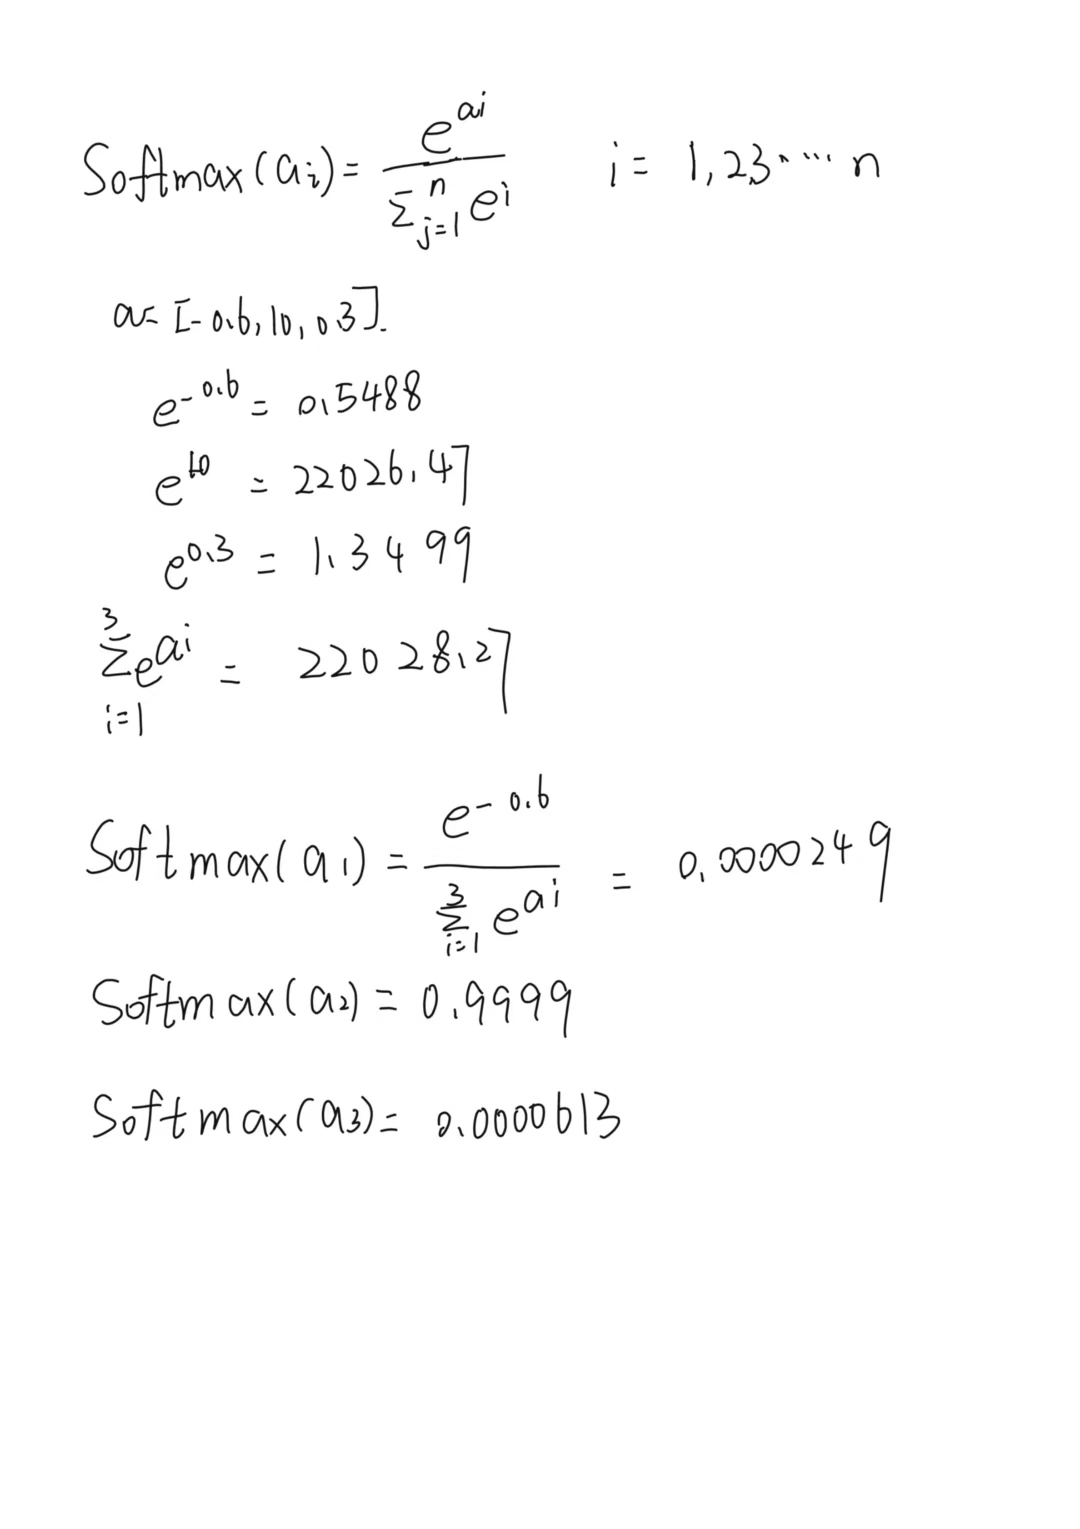 Softmax(ai) = e^ai / Σ_{j=1}^n e^i    i = 1,23..... n
a= [-0.6, 10, 0.3].
e^-0.6 = 0.5488
e^10 = 22026.47
e^0.3 = 1.3499
Σ_{i=1}^3 e^ai = 22028.27
Softmax(a1) = e^-0.6 / Σ_{i=1}^3 e^ai = 0.0000249
Softmax(a2) = 0.9999
Softmax(a3) = 0.0000613